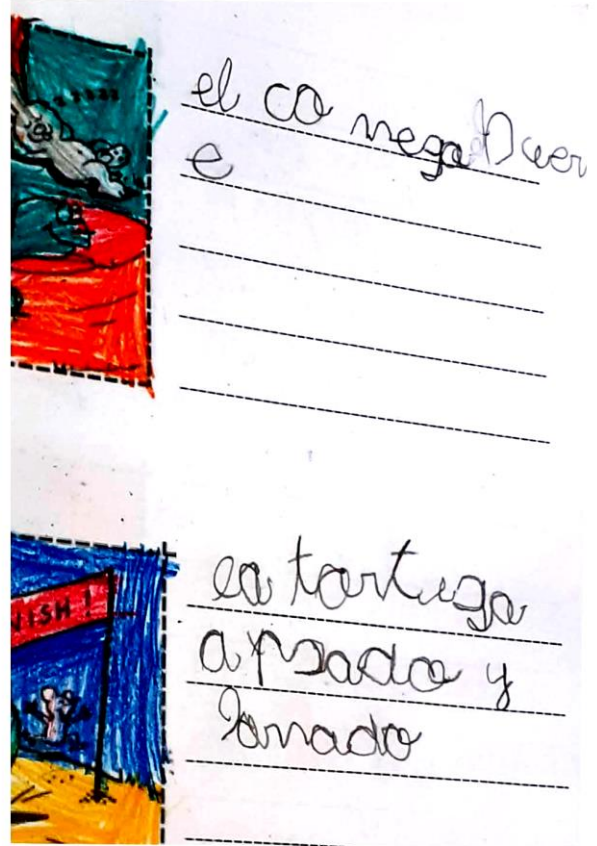 el co nega Duer
e
NISH !
la tortuga
a pasado y
ganado